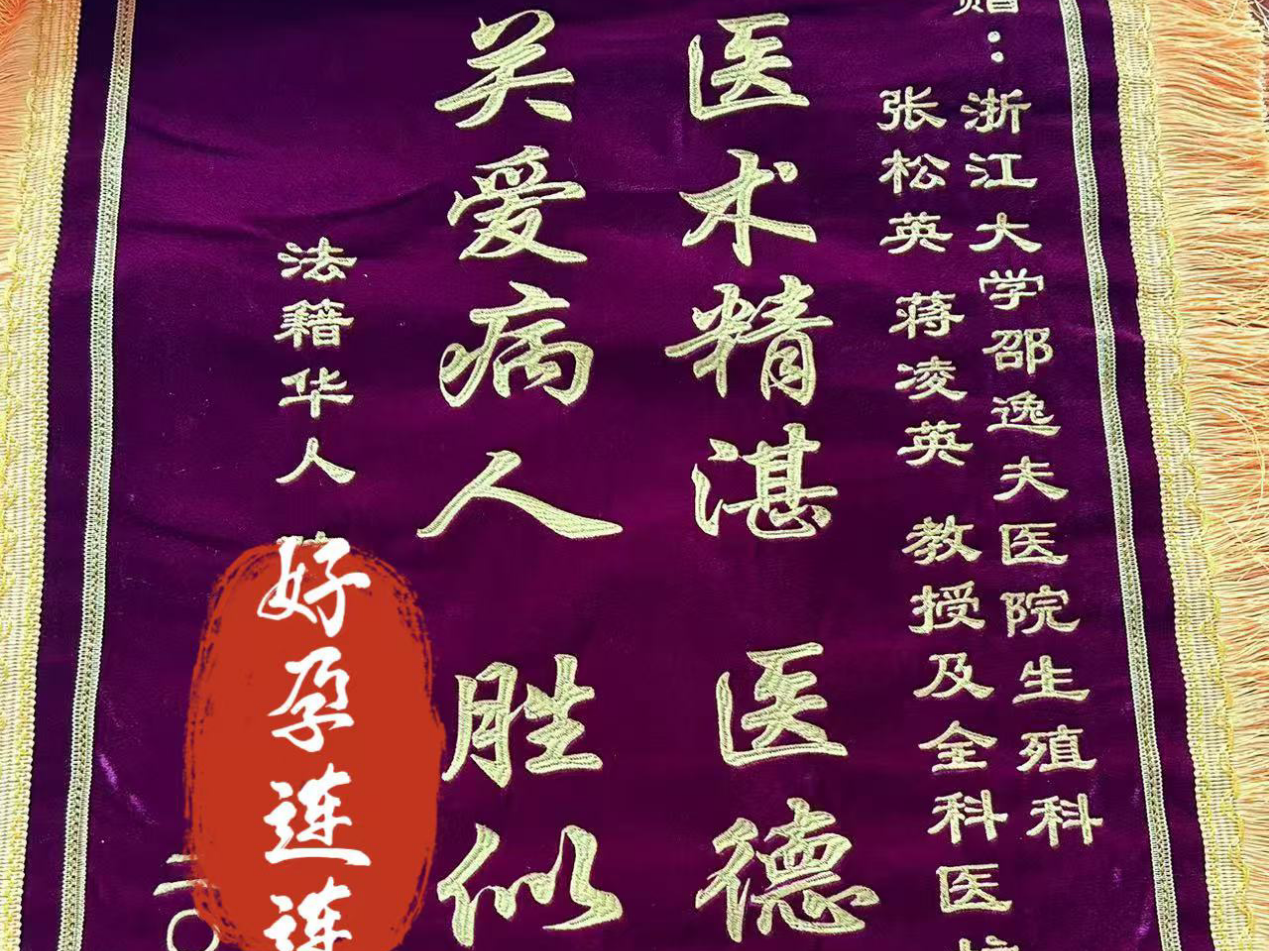 赠：浙江大学邵逸夫医院生殖科
张松英 蒋凌英 教授及全科医
医术精湛 医德
关爱病人 胜似
法籍华人
二〇
好孕连连